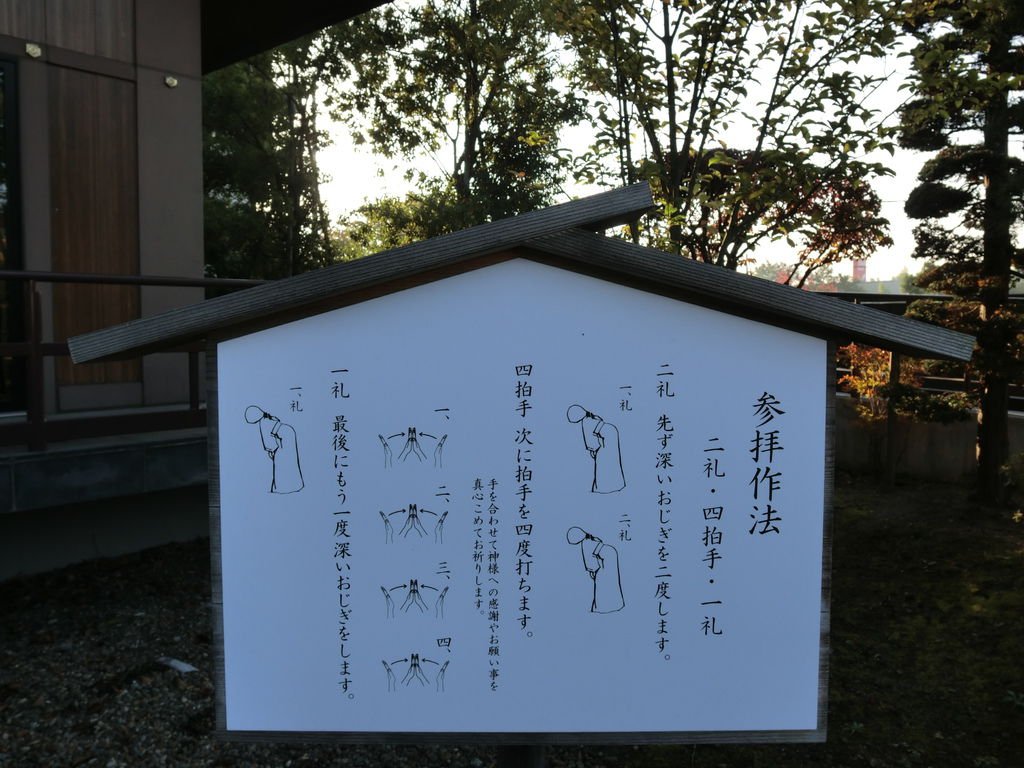 参拝作法
二礼・四拍手・一礼
二礼 先ず深いおじぎを二度します。
一、礼
二、礼
四拍手 次に拍手を四度打ちます。
手を合わせて神様への感謝やお願い事を
真心こめてお祈りします。
一、
二、
三、
四、
一礼 最後にもう一度深いおじぎをします。
一、礼